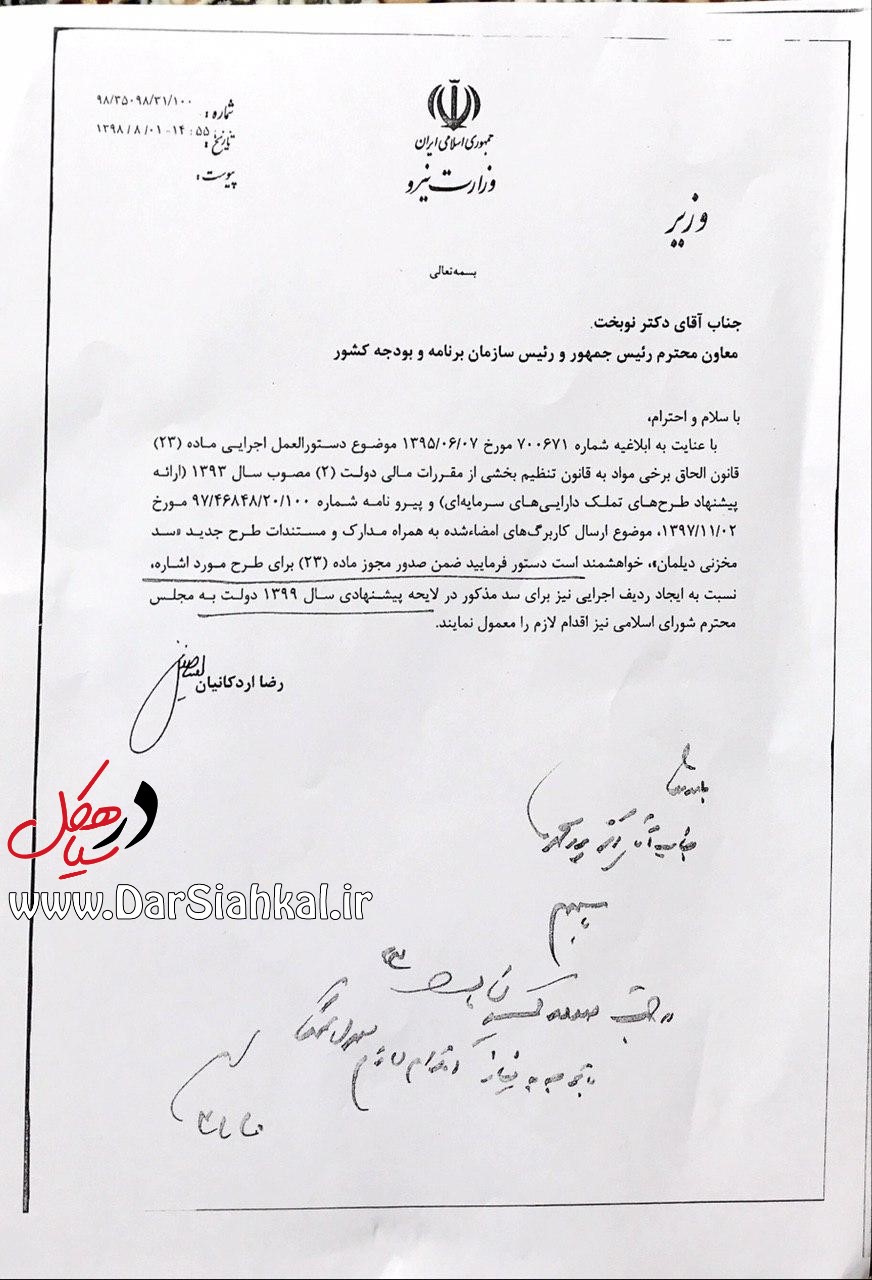 شماره: ۹۸/۳۵۰۹۸/۳۱/۱۰۰
تاریخ: ۱۳۹۸/۸/۰۱-۱۴:۵۵
پیوست:
جمهوری اسلامی ایران
وزارت نیرو
وزیر
بسمه تعالی
جناب آقای دکتر نوبخت
معاون محترم رئیس جمهور و رئیس سازمان برنامه و بودجه کشور
با سلام و احترام،
با عنایت به ابلاغیه شماره ۷۰۰۶۷۱ مورخ ۱۳۹۵/۰۶/۰۷ موضوع دستورالعمل اجرایی ماده (۲۳)
قانون الحاق برخی مواد به قانون تنظیم بخشی از مقررات مالی دولت (۲) مصوب سال ۱۳۹۳ (ارائه
پیشنهاد طرح‌های تملک دارایی‌های سرمایه‌ای) و پیرو نامه شماره ۹۷/۴۶۸۴۸/۲۰/۱۰۰ مورخ
۱۳۹۷/۱۱/۰۲، موضوع ارسال کاربرگ‌های امضاءشده به همراه مدارک و مستندات طرح جدید «سد
مخزنی دیلمان»، خواهشمند است دستور فرمایید ضمن صدور مجوز ماده (۲۳) برای طرح مورد اشاره،
نسبت به ایجاد ردیف اجرایی نیز برای سد مذکور در لایحه پیشنهادی سال ۱۳۹۹ دولت به مجلس
محترم شورای اسلامی نیز اقدام لازم را معمول نمایند.
رضا اردکانیان
در سیاهکل
www.DarSiahkal.ir
۲۳
با توجه به نیاز اقدام لازم